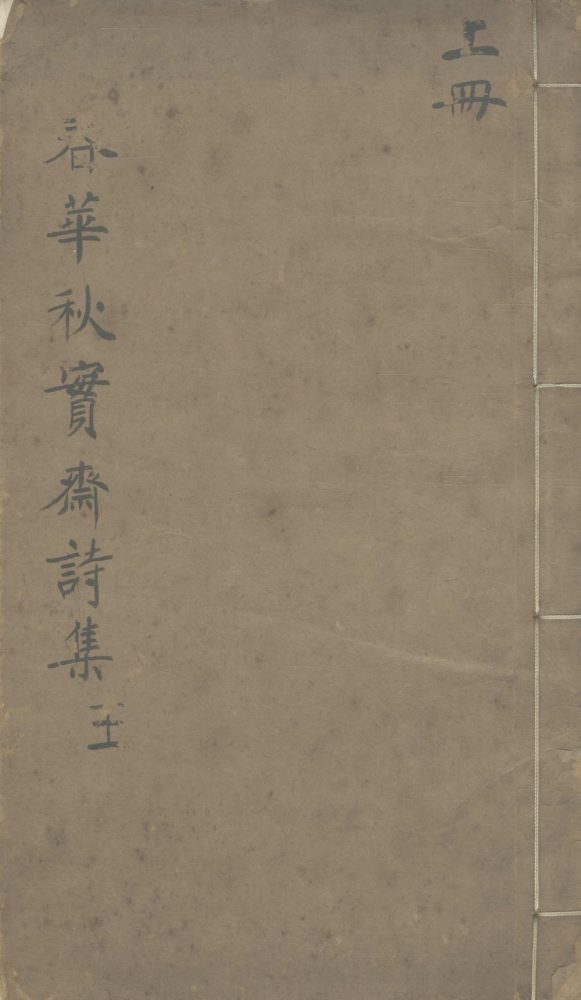 上冊
春華秋實齋詩集